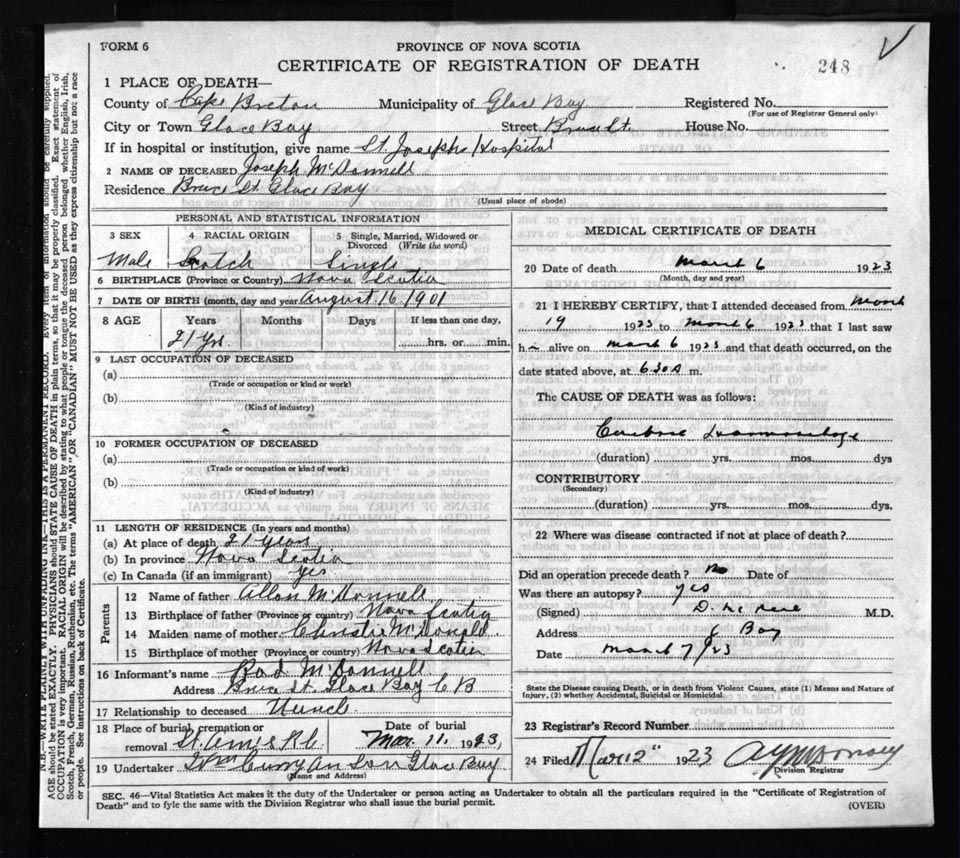 FORM 6
PROVINCE OF NOVA SCOTIA
CERTIFICATE OF REGISTRATION OF DEATH
248
1 PLACE OF DEATH—
County of Cape Breton Municipality of Glace Bay Registered No.
(For use of Registrar General only)
City or Town Glace Bay Street Bruce St. House No.
If in hospital or institution, give name St. Josephs Hospital
2 NAME OF DECEASED Joseph McDonnell
Residence Bruce St. Glace Bay
(Usual place of abode)
PERSONAL AND STATISTICAL INFORMATION
3 SEX 4 RACIAL ORIGIN 5 Single, Married, Widowed or Divorced (Write the word)
Male Scotch Single
6 BIRTHPLACE (Province or Country) Nova Scotia
7 DATE OF BIRTH (month, day and year August 16 1901
8 AGE Years Months Days If less than one day,
21 yrs. hrs. or min.
9 LAST OCCUPATION OF DECEASED
(a)
(Trade or occupation or kind or work)
(b)
(Kind of industry)
10 FORMER OCCUPATION OF DECEASED
(a)
(Trade or occupation or kind or work)
(b)
(Kind of industry)
11 LENGTH OF RESIDENCE (In years and months)
(a) At place of death 21 years
(b) In province Nova Scotia
(c) In Canada (if an immigrant) yes
Parents
12 Name of father Allan McDonnell
13 Birthplace of father (Province or country) Nova Scotia
14 Maiden name of mother Christie McDonald
15 Birthplace of mother (Province or country) Nova Scotia
16 Informant's name McDonnell
Address Bruce St. Glace Bay C B
17 Relationship to deceased Uncle
18 Place of burial, cremation or removal St. Date of burial Mar. 11, 1923,
19 Undertaker Curry An Son Glace Bay
(Name and Address)
MEDICAL CERTIFICATE OF DEATH
20 Date of death March 6 1923
(Month, day and year)
21 I HEREBY CERTIFY, that I attended deceased from March
19 1923 to March 6 1923 that I last saw
h alive on March 6 1923 and that death occurred, on the
date stated above, at 6.30 A m.
The CAUSE OF DEATH was as follows:
(duration) yrs. mos. dys
CONTRIBUTORY
(Secondary)
(duration) yrs. mos. dys.
22 Where was disease contracted if not at place of death?
Did an operation precede death? No Date of
Was there an autopsy? yes
(Signed) M.D.
Address Bay
Date March 7/23
State the Disease causing Death, or in death from Violent Causes, state (1) Means and Nature of Injury, (2) whether Accidental, Suicidal or Homicidal.
23 Registrar's Record Number
24 Filed Mar 12" 1923
Division Registrar
SEC. 46—Vital Statistics Act makes it the duty of the Undertaker or person acting as Undertaker to obtain all the particulars required in the "Certificate of Registration of
Death" and to fyle the same with the Division Registrar who shall issue the burial permit.
(OVER)
N.B.—WRITE PLAINLY WITH UNFADING INK—THIS IS A PERMANENT RECORD. Every item of information should be carefully supplied.
AGE should be stated EXACTLY. PHYSICIANS should STATE CAUSE OF DEATH in plain terms, so that it may be properly classified. Exact statement of
OCCUPATION is very important. RACIAL ORIGIN will be described by stating to what people or tongue the deceased person belonged whether English, Irish,
Scotch, French, German, Russian, Ruthenian, etc. The terms "AMERICAN" OR "CANADIAN" MUST NOT BE USED as they express citizenship but not a race
or people. See instructions on back of Certificate.